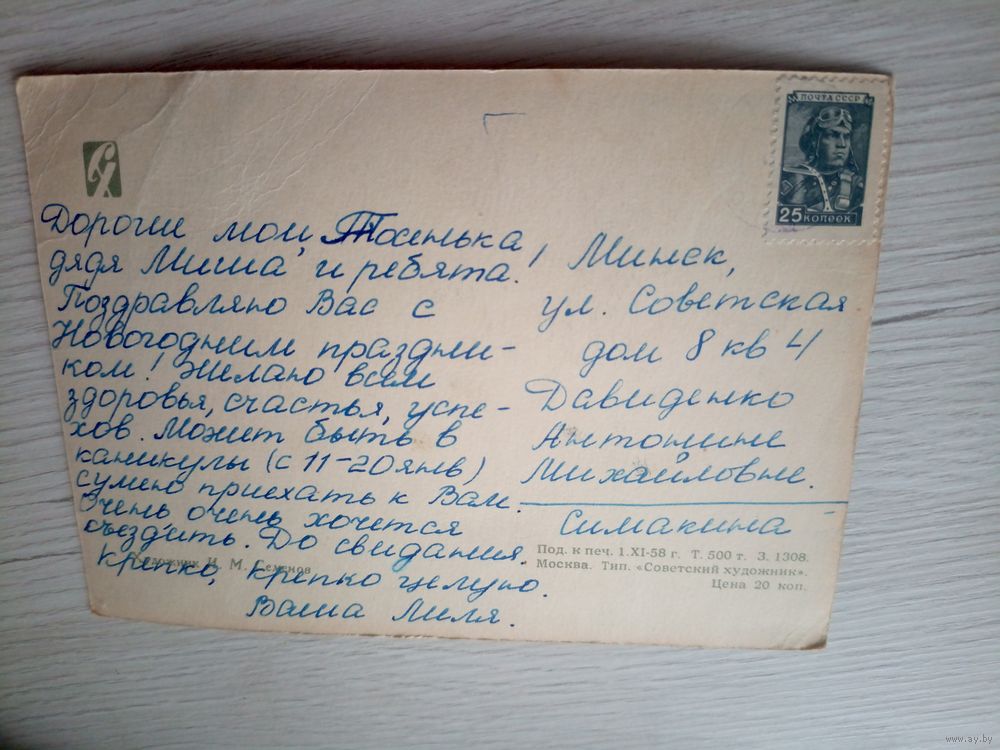 ПОЧТА СССР
25 КОПЕЕК
Дорогие мои Тосенька,
дядя Миша и ребята!
Поздравляю Вас с
Новогодним праздни-
ком! Желаю всем
здоровья, счастья, успе-
хов. Может быть в
каникулы (с 11-20 янв)
сумею приехать к Вам.
Очень очень хочется
съездить. До свидания.
Крепко, крепко целую.
Ваша Лиля.
Минск,
ул. Советская
дом 8 кв 4
Давиденко
Антонине
Михайловне.
Симакина
Художник И. М. Семенов
Под. к печ. 1.XI-58 г. Т. 500 т. З. 1308.
Москва. Тип. «Советский художник».
Цена 20 коп.
www.ay.by